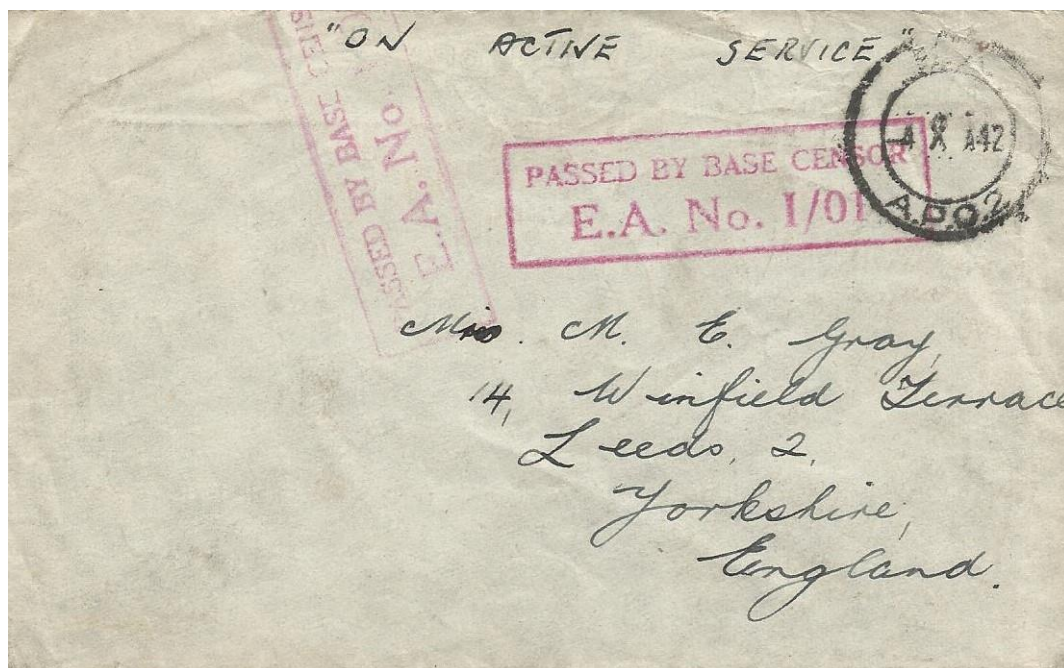 "ON ACTIVE SERVICE"
PASSED BY BASE
E.A. No
PASSED BY BASE CENSOR
E.A. No. 1/01
A42
A.P.O.2
Mrs. M. E. Gray,
14, Winfield Terrace
Leeds, 2,
Yorkshire,
England.